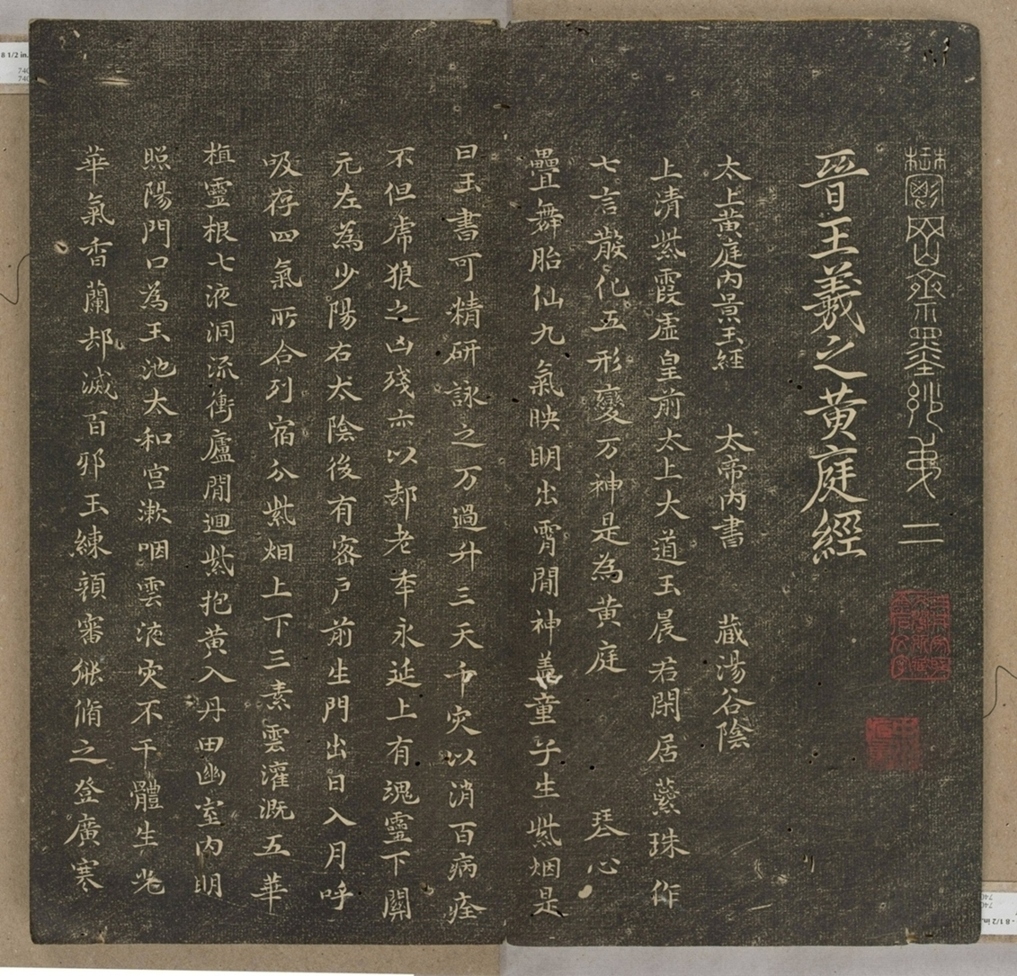 鬱岡齋墨妙弟二
晉王羲之黃庭經
太上黃庭內景玉經 太帝內書 藏湯谷陰
上清紫霞虛皇前太上大道玉晨君閑居蘂珠作
七言散化五形變万神是為黃庭 琴心
疊舞胎仙九氣映明出霄間神蓋童子生紫烟是
曰玉書可精研詠之万過升三天千灾以消百病痊
不但虎狼之凶殘亦以却老年永延上有魂靈下關
元左為少陽右太陰後有密戶前生門出日入月呼
吸存四氣所合列宿分紫烟上下三素雲灌溉五華
植靈根七液洞流衝廬間迴紫抱黃入丹田幽室內明
照陽門口為玉池太和宮漱咽雲液灾不干體生光
華氣香蘭却滅百邪玉練顏審能脩之登廣寒